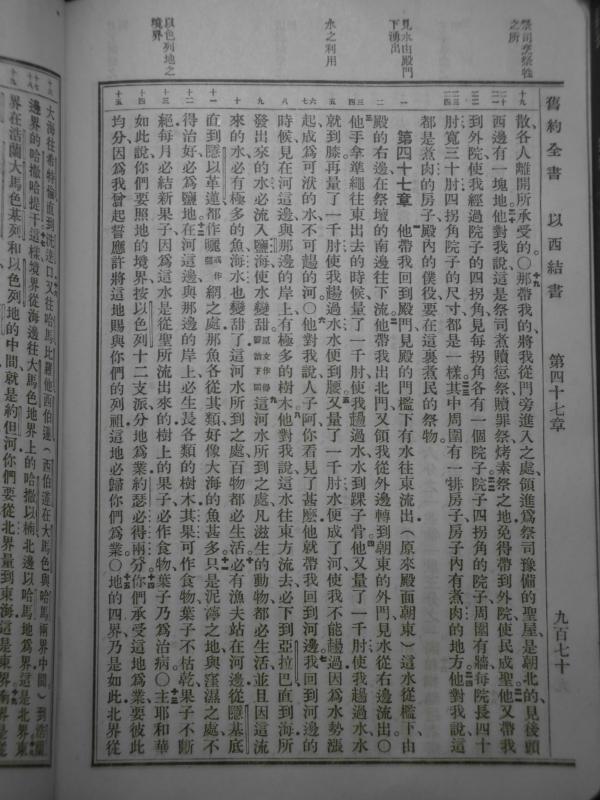 祭司烹祭牲之所
見水由殿門下湧出
水之利用
以色列地之境界
舊約全書 以西結書 第四十七章 九百七十
散各人離開所承受的○那帶我的將我從門旁進入之處領進爲祭司豫備的聖屋是朝北的見後頭
西邊有一塊地他對我說這是祭司煮贖愆祭贖罪祭烤素祭之地免得帶到外院使民成聖他又帶我
到外院使我經過院子的四拐角見每拐角各有一個院子院子四拐角的院子周圍有牆每院長四十
肘寬三十肘四拐角院子的尺寸都是一樣其中周圍有一排房子房子內有煮肉的地方他對我說這
都是煮肉的房子殿內的僕役要在這裏煮民的祭物
第四十七章 他帶我回到殿門見殿的門檻下有水往東流出(原來殿面朝東)這水從檻下由
殿的右邊在祭壇的南邊往下流他帶我出北門又領我從外邊轉到朝東的外門見水從右邊流出○
他手拿準繩往東出去的時候量了一千肘使我趟過水水到踝子骨他又量了一千肘使我趟過水水
就到膝再量了一千肘使我趟過水水便到腰又量了一千肘水便成了河使我不能趟過因爲水勢漲
起成爲可洑的水不可趟的河○他對我說人子阿你看見了甚麼他就帶我回到河邊我回到河邊的
時候見在河這邊與那邊的岸上有極多的樹木他對我說這水往東方流去必下到亞拉巴直到海所
發出來的水必流入鹽海使水變甜這河水所到之處凡滋生的動物都必生活並且因這流
來的水必有極多的魚海水也變甜了這河水所到之處百物都必生活必有漁夫站在河邊從隱基底
直到隱以革蓮都作曬網之處那魚各從其類好像大海的魚甚多只是泥濘之地與窪濕之處不
得治好必爲鹽地在河這邊與那邊的岸上必生長各類的樹木其果可作食物葉子不枯乾果子不斷
絕每月必結新果子因爲這水是從聖所流出來的樹上的果子必作食物葉子乃爲治病○主耶和華
如此說你們要照地的境界按以色列十二支派分地爲業約瑟必得兩分你們承受這地爲業要彼此
均分因爲我曾起誓應許將這地賜與你們的列祖這地必歸你們爲業○地的四界乃是如此北界從
大海往希特倫直到西達達口又往哈馬比羅他西伯蓮(西伯蓮在大馬色與哈馬兩界中間)到浩蘭
邊界的哈撒哈提干這樣境界從海邊往大馬色地界上的哈撒以楠北邊以哈馬地爲界這是北界東
界在浩蘭大馬色基列和以色列地的中間就是約但河你們要從北界量到東海這是東界南界是從